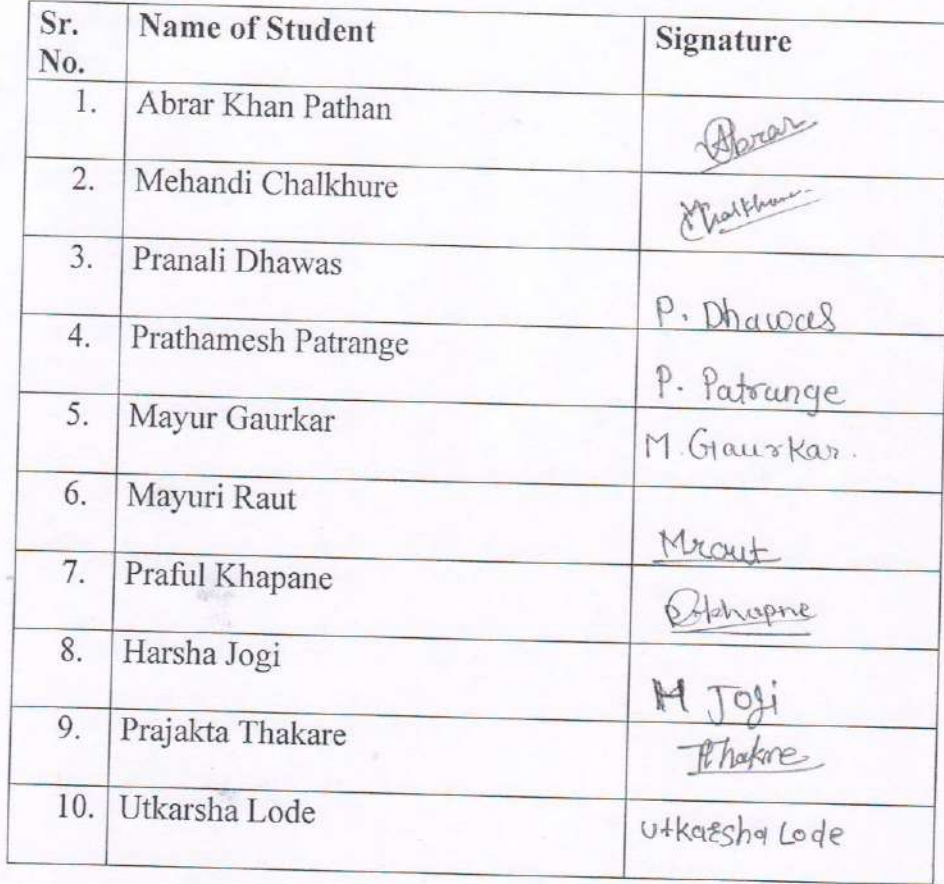 Sr. No. Name of Student Signature
1. Abrar Khan Pathan Abrar
2. Mehandi Chalkhure
3. Pranali Dhawas P. Dhawas
4. Prathamesh Patrange P. Patrange
5. Mayur Gaurkar M. Gaurkar.
6. Mayuri Raut Mraut
7. Praful Khapane
8. Harsha Jogi H Jogi
9. Prajakta Thakare
10. Utkarsha Lode Utkarsha Lode